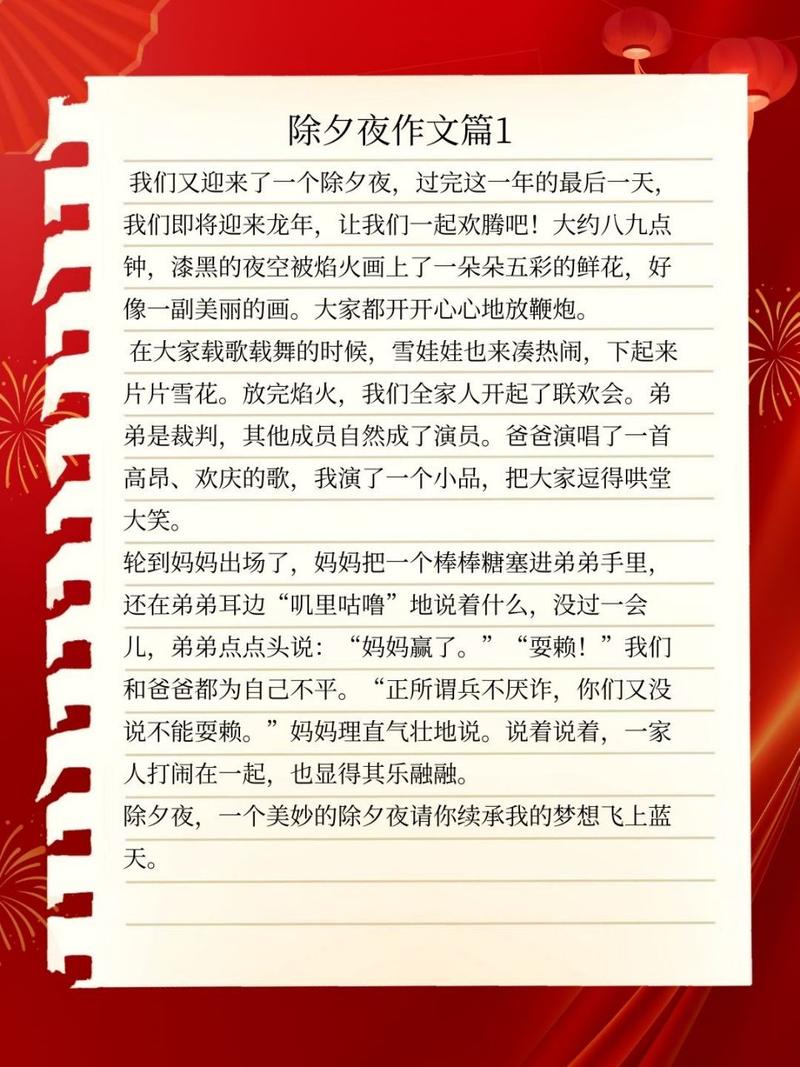 除夕夜作文篇1
我们又迎来了一个除夕夜，过完这一年的最后一天，
我们即将迎来龙年，让我们一起欢腾吧！大约八九点
钟，漆黑的夜空被焰火画上了一朵朵五彩的鲜花，好
像一副美丽的画。大家都开开心心地放鞭炮。
在大家载歌载舞的时候，雪娃娃也来凑热闹，下起来
片片雪花。放完焰火，我们全家人开起了联欢会。弟
弟是裁判，其他成员自然成了演员。爸爸演唱了一首
高昂、欢庆的歌，我演了一个小品，把大家逗得哄堂
大笑。
轮到妈妈出场了，妈妈把一个棒棒糖塞进弟弟手里，
还在弟弟耳边“叽里咕噜”地说着什么，没过一会
儿，弟弟点点头说：“妈妈赢了。”“耍赖！”我们
和爸爸都为自己不平。“正所谓兵不厌诈，你们又没
说不能耍赖。”妈妈理直气壮地说。说着说着，一家
人打闹在一起，也显得其乐融融。
除夕夜，一个美妙的除夕夜请你续承我的梦想飞上蓝
天。